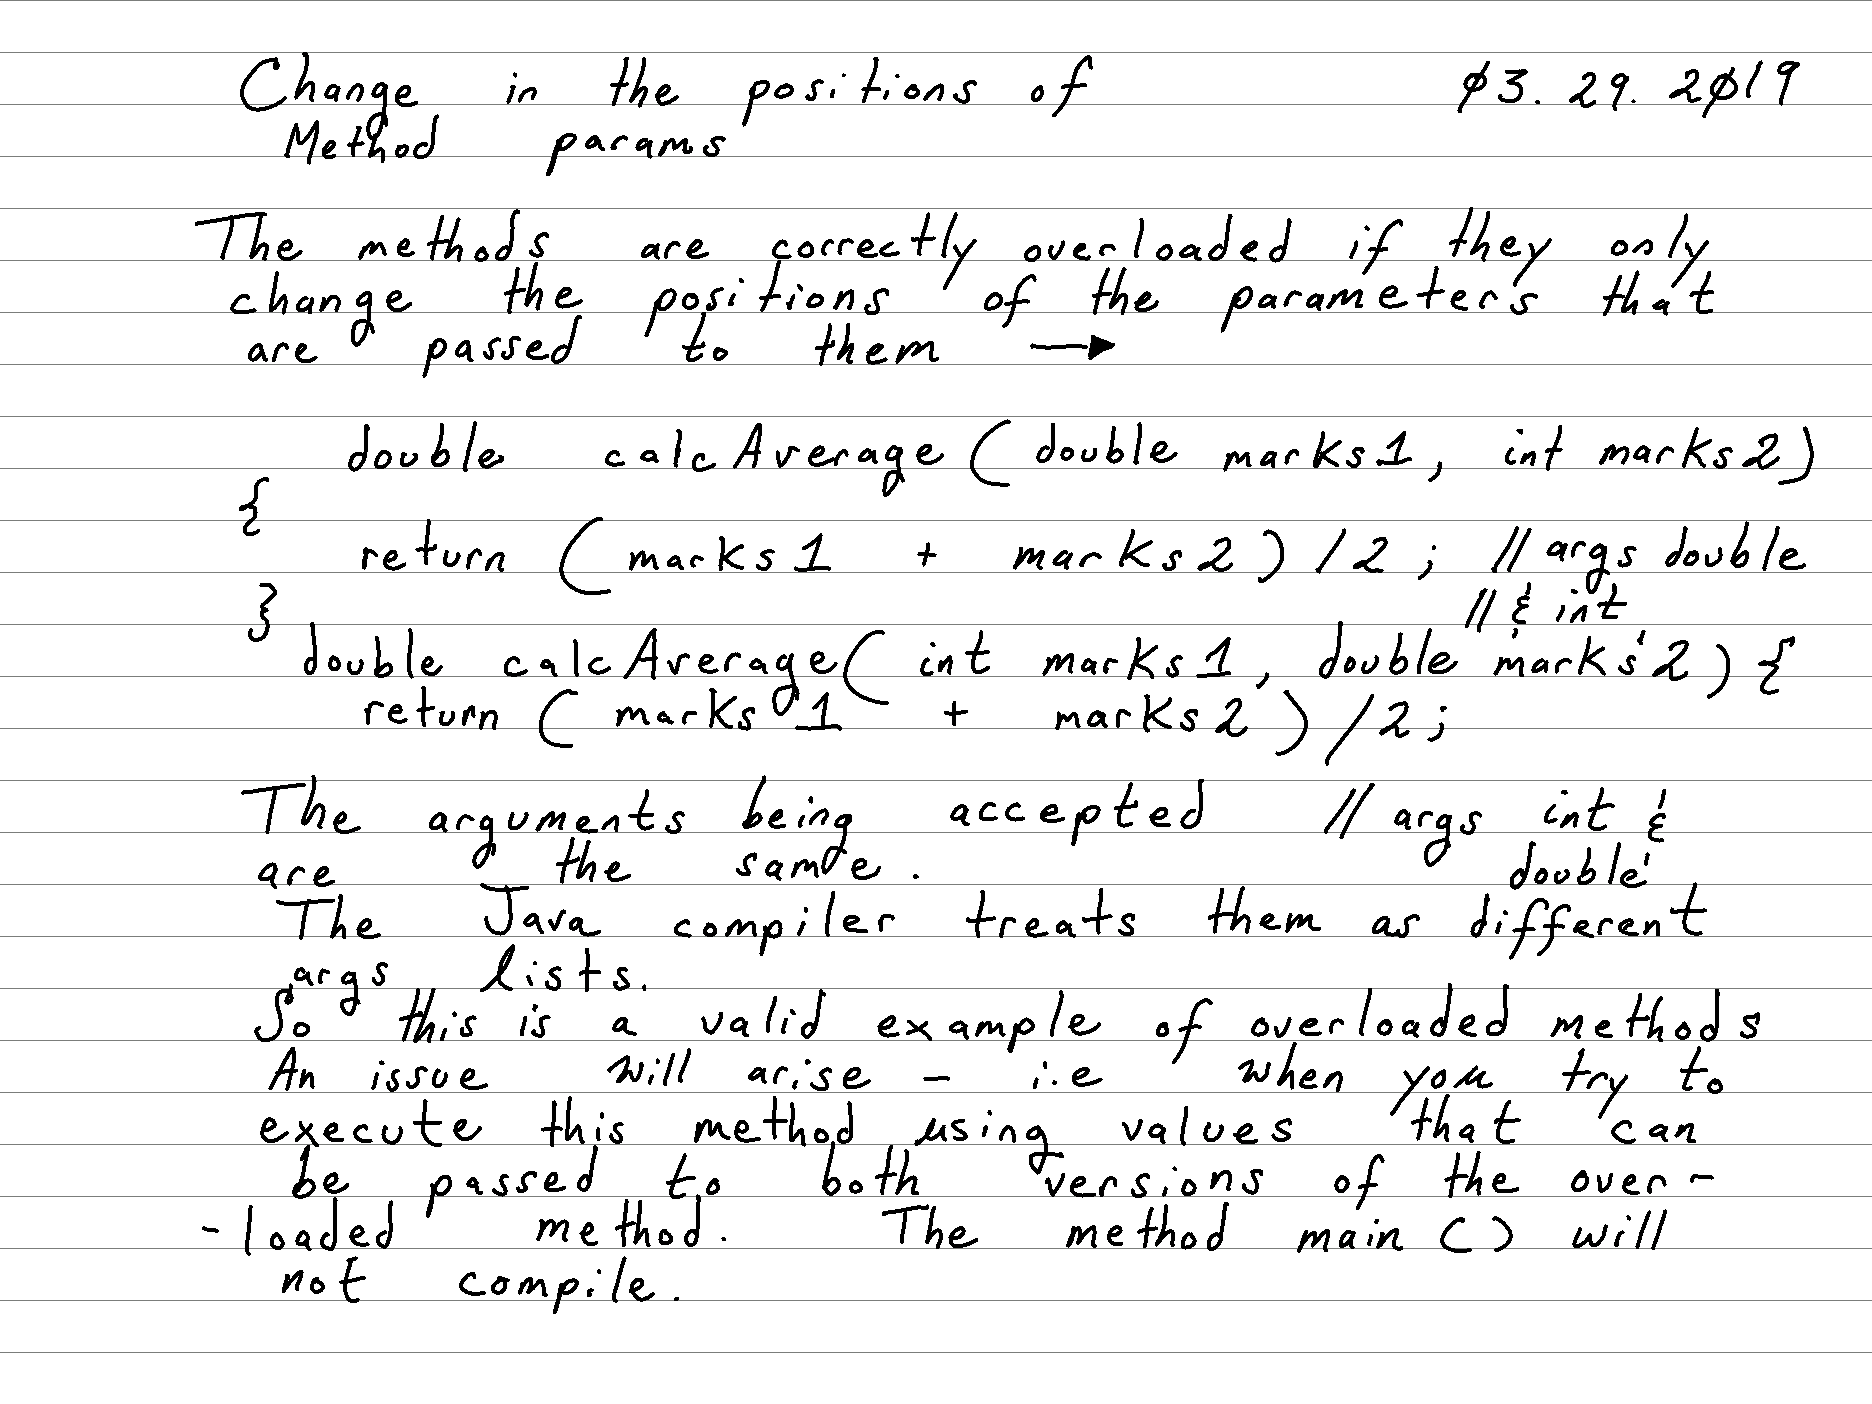 Change in the positions of
03.29.2019
Method params
The methods are correctly overloaded if they only
change the positions of the parameters that
are passed to them →
double calcAverage(double marks1, int marks2)
{
return (marks1 + marks2)/2; // args double
// & int
}
double calcAverage(int marks1, double marks2){
return (marks1 + marks2)/2;
The arguments being accepted // args int &
are the same. double
The Java compiler treats them as different
args lists.
So this is a valid example of overloaded methods
An issue will arise - i.e when you try to
execute this method using values that can
be passed to both versions of the over-
-loaded method. The method main () will
not compile.